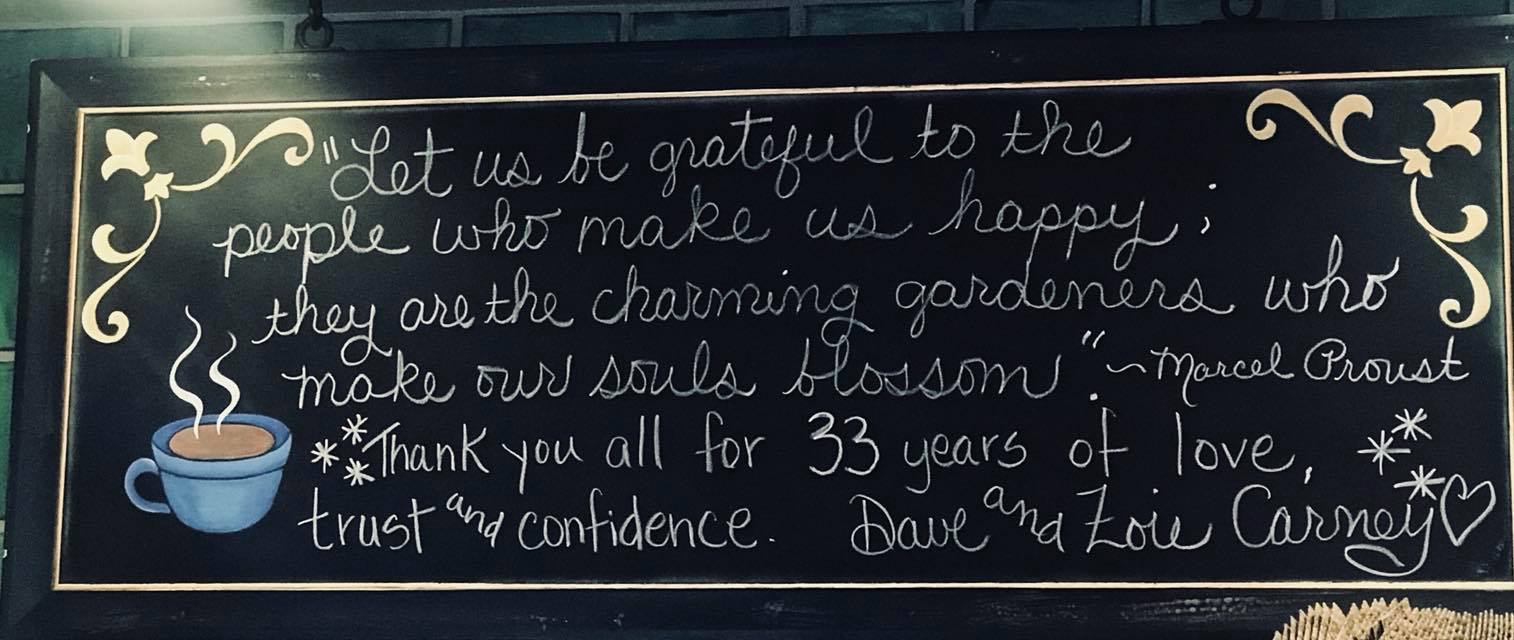 "Let us be grateful to the
people who make us happy;
they are the charming gardeners who
make our souls blossom". ~Marcel Proust
***Thank you all for 33 years of love, ***
trust and confidence. Dave and Zoie Carney♡